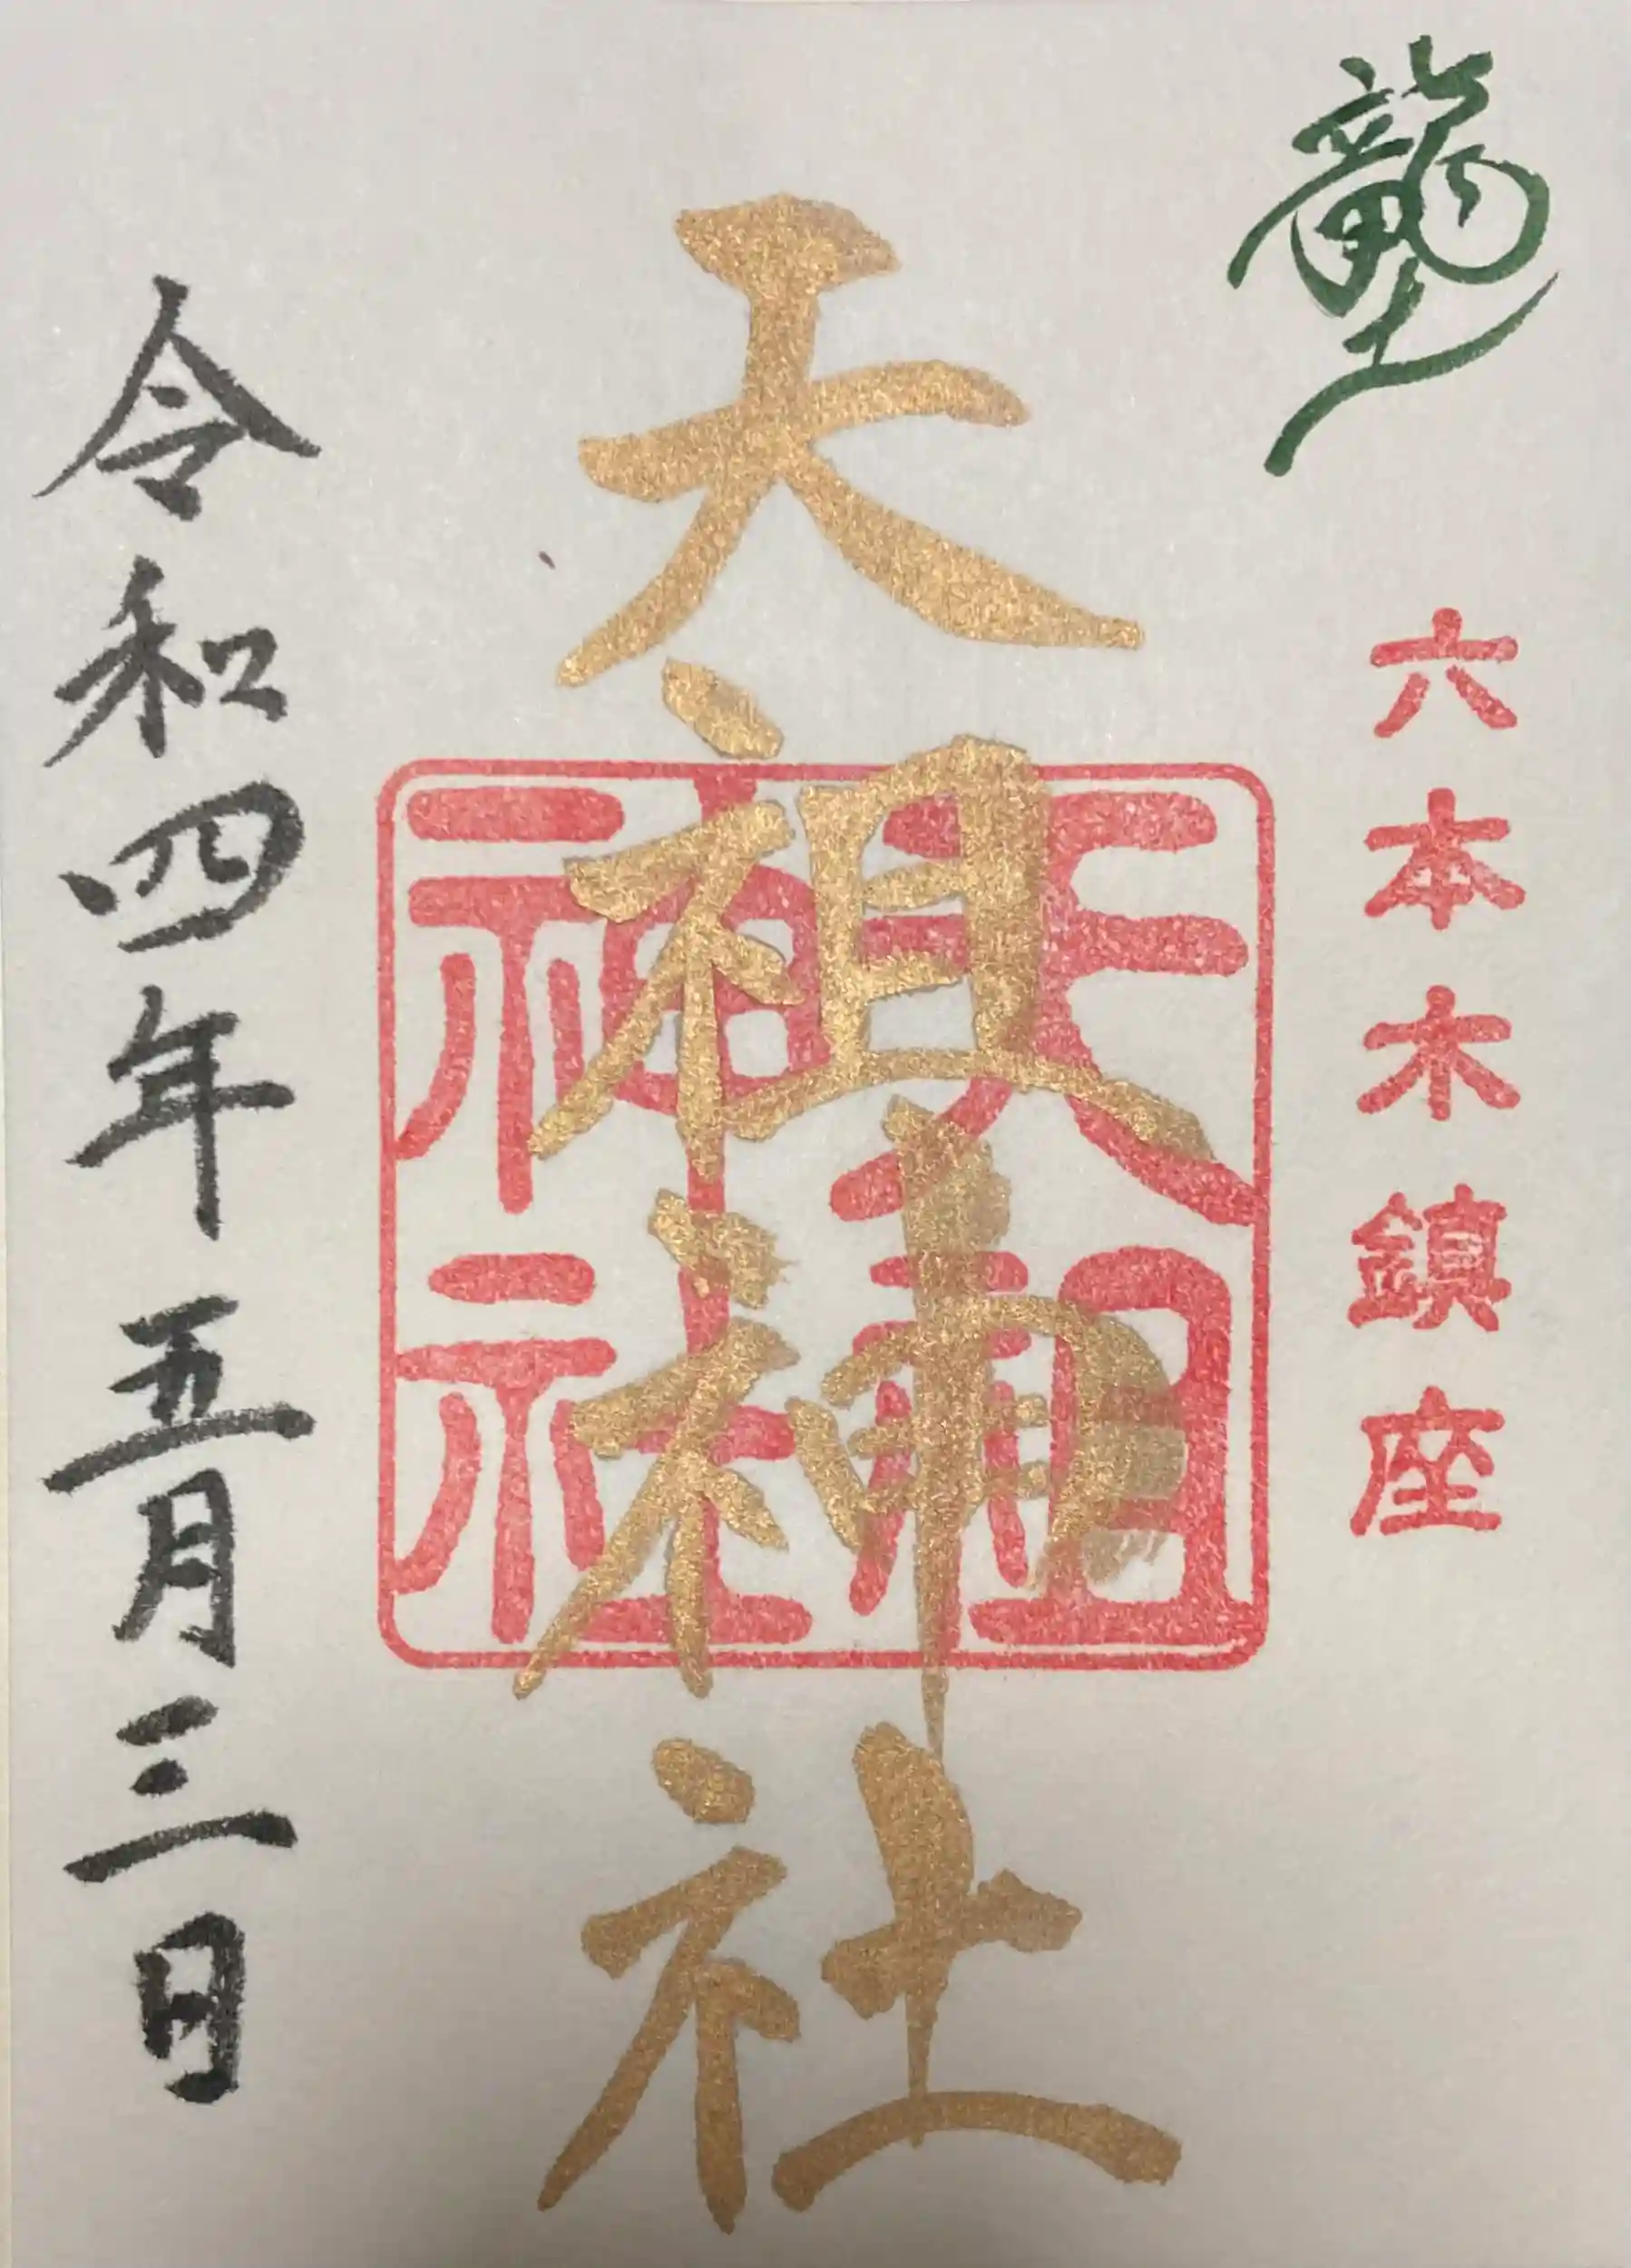 龍土
六本木鎮座
天祖神社
天祖
神社
令和四年五月三日